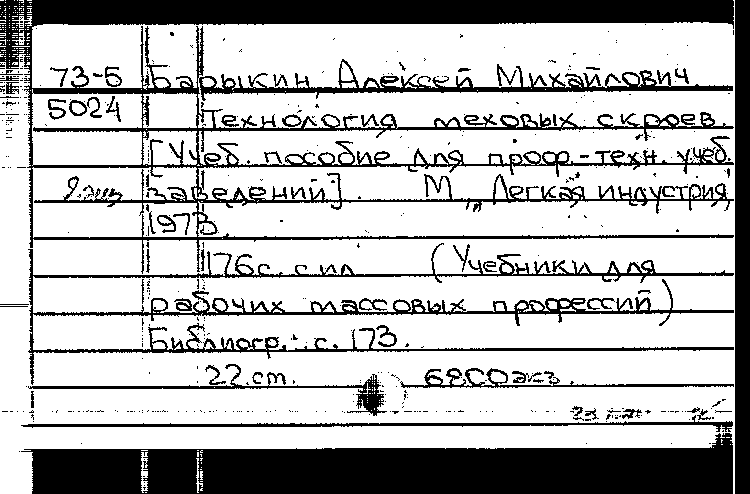 73-5 Барыкин, Алексей Михайлович.
5024 Технология меховых скроев.
[Учеб. пособие для проф.-техн. учеб.
заведений]. М., "Легкая индустрия",
1973.
176 с. с ил. (Учебники для
рабочих массовых профессий)
Библиогр.: с. 173.
22 cm. 6800 экз.